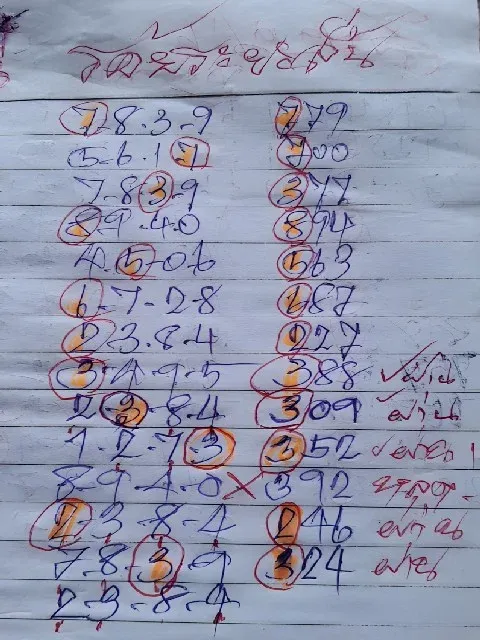 7-8-3-9 779
5-6-1-7 700
7-8-3-9 377
8-9-4-0 894
4-5-0-6 563
6-7-2-8 687
2-3-8-4 227
3-4-9-5 388
2-3-8-4 309 ผ่าน
1-2-7-3 352
8-9-4-0 × 392
2-3-8-4 246 ผ่าน
7-8-3-9 324 ผ่าน
2-3-8-4